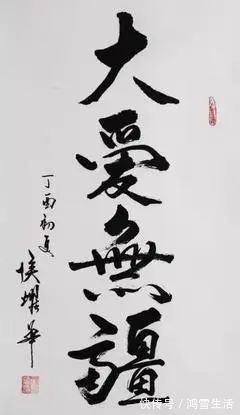 大愛無疆
丁酉初夏
侯耀華
快传号／鸿雪生活